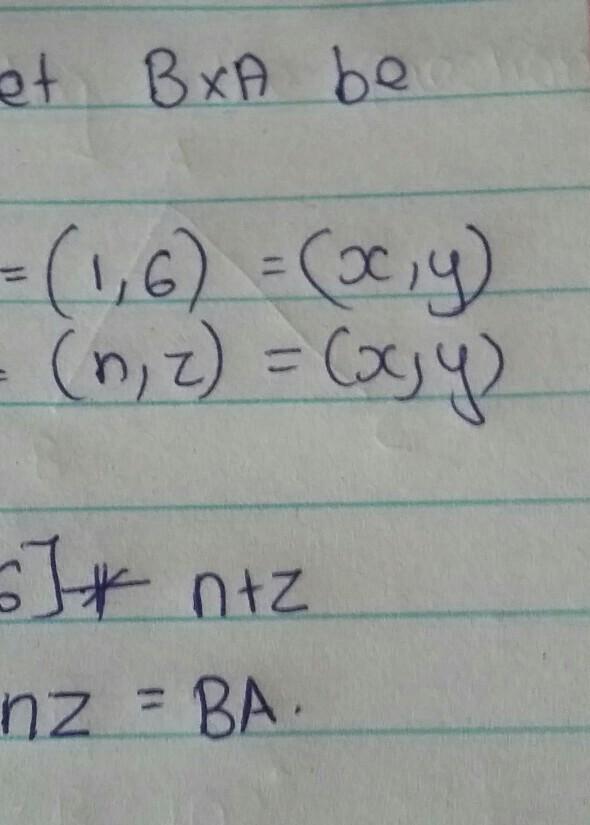 et B×A be
= (1,6) = (x,y)
= (n,z) = (x,y)
6]* n+z
nz = BA.